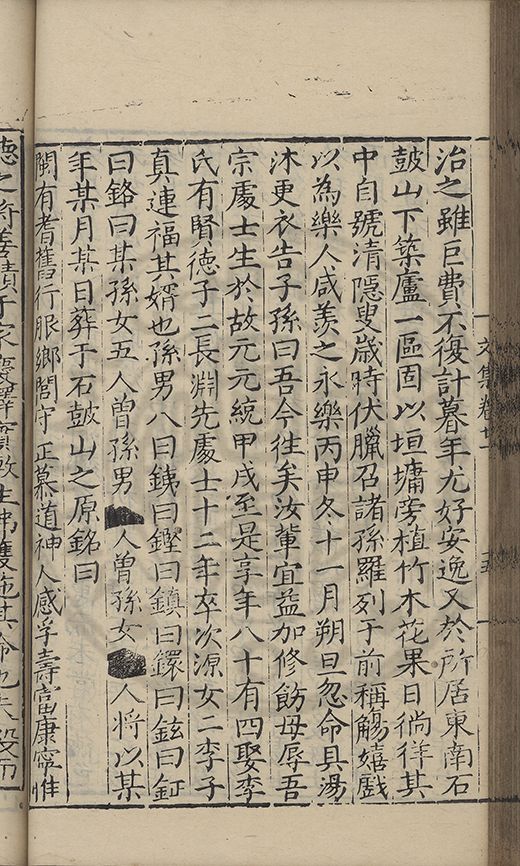 文集卷廿
治之雖巨費不復計暮年尤好安逸又於所居東南石
鼓山下築廬一區固以垣墉旁植竹木花果日徜徉其
中自號清隱叟歲時伏臘召諸孫羅列于前稱觴嬉戲
以為樂人咸羨之永樂丙申冬十一月朔旦忽命具湯
沐更衣告子孫曰吾今往矣汝輩宜益加修飭毋辱吾
宗處士生於故元元統甲戌至是享年八十有四娶李
氏有賢德子二長淵先處士十二年卒次源女二李子
真連福其婿也孫男八曰銕曰鏗曰鎮曰鐶曰鉉曰鉦
曰鉻曰某孫女五人曾孫男人曾孫女人將以某
年某月某日葬于石鼓山之原銘曰
閩有耆舊行服鄉閭守正慕道神人感孚壽富康寧惟